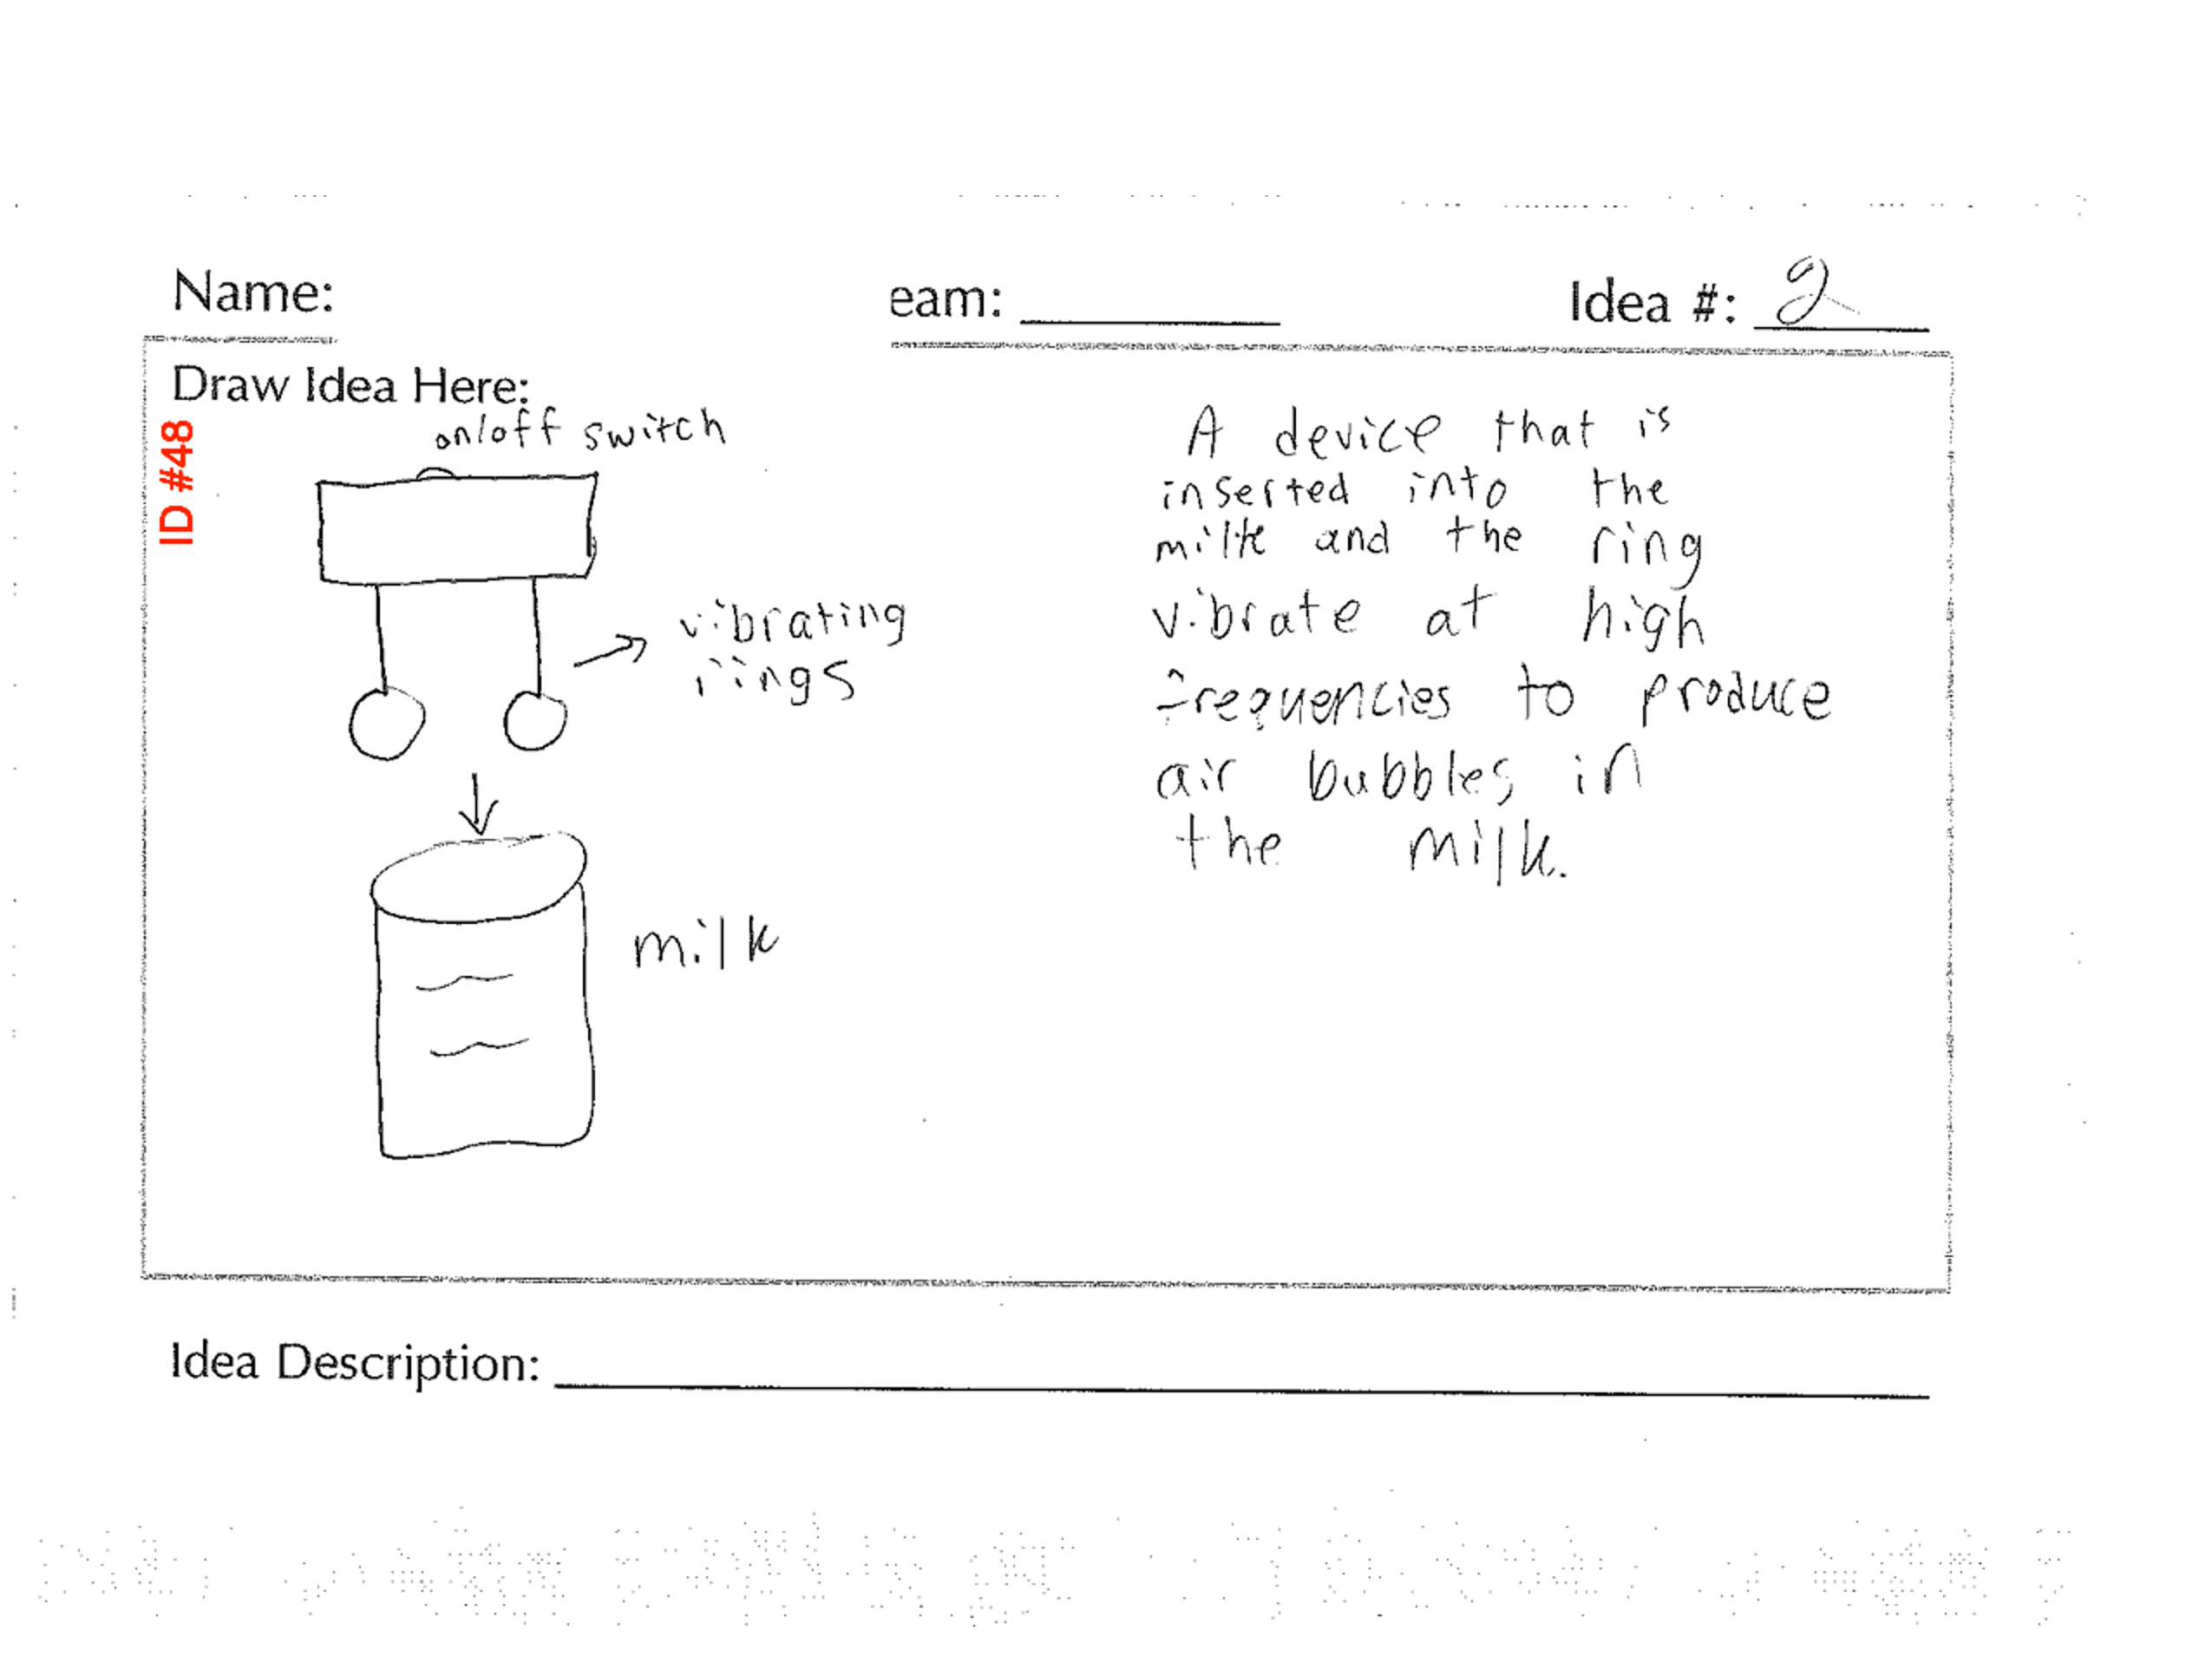 Name:
eam:
Idea #: 2
Draw Idea Here:
ID #48
on/off switch
vibrating
rings
milk
A device that is
inserted into the
milk and the ring
vibrate at high
frequencies to produce
air bubbles in
the milk.
Idea Description: